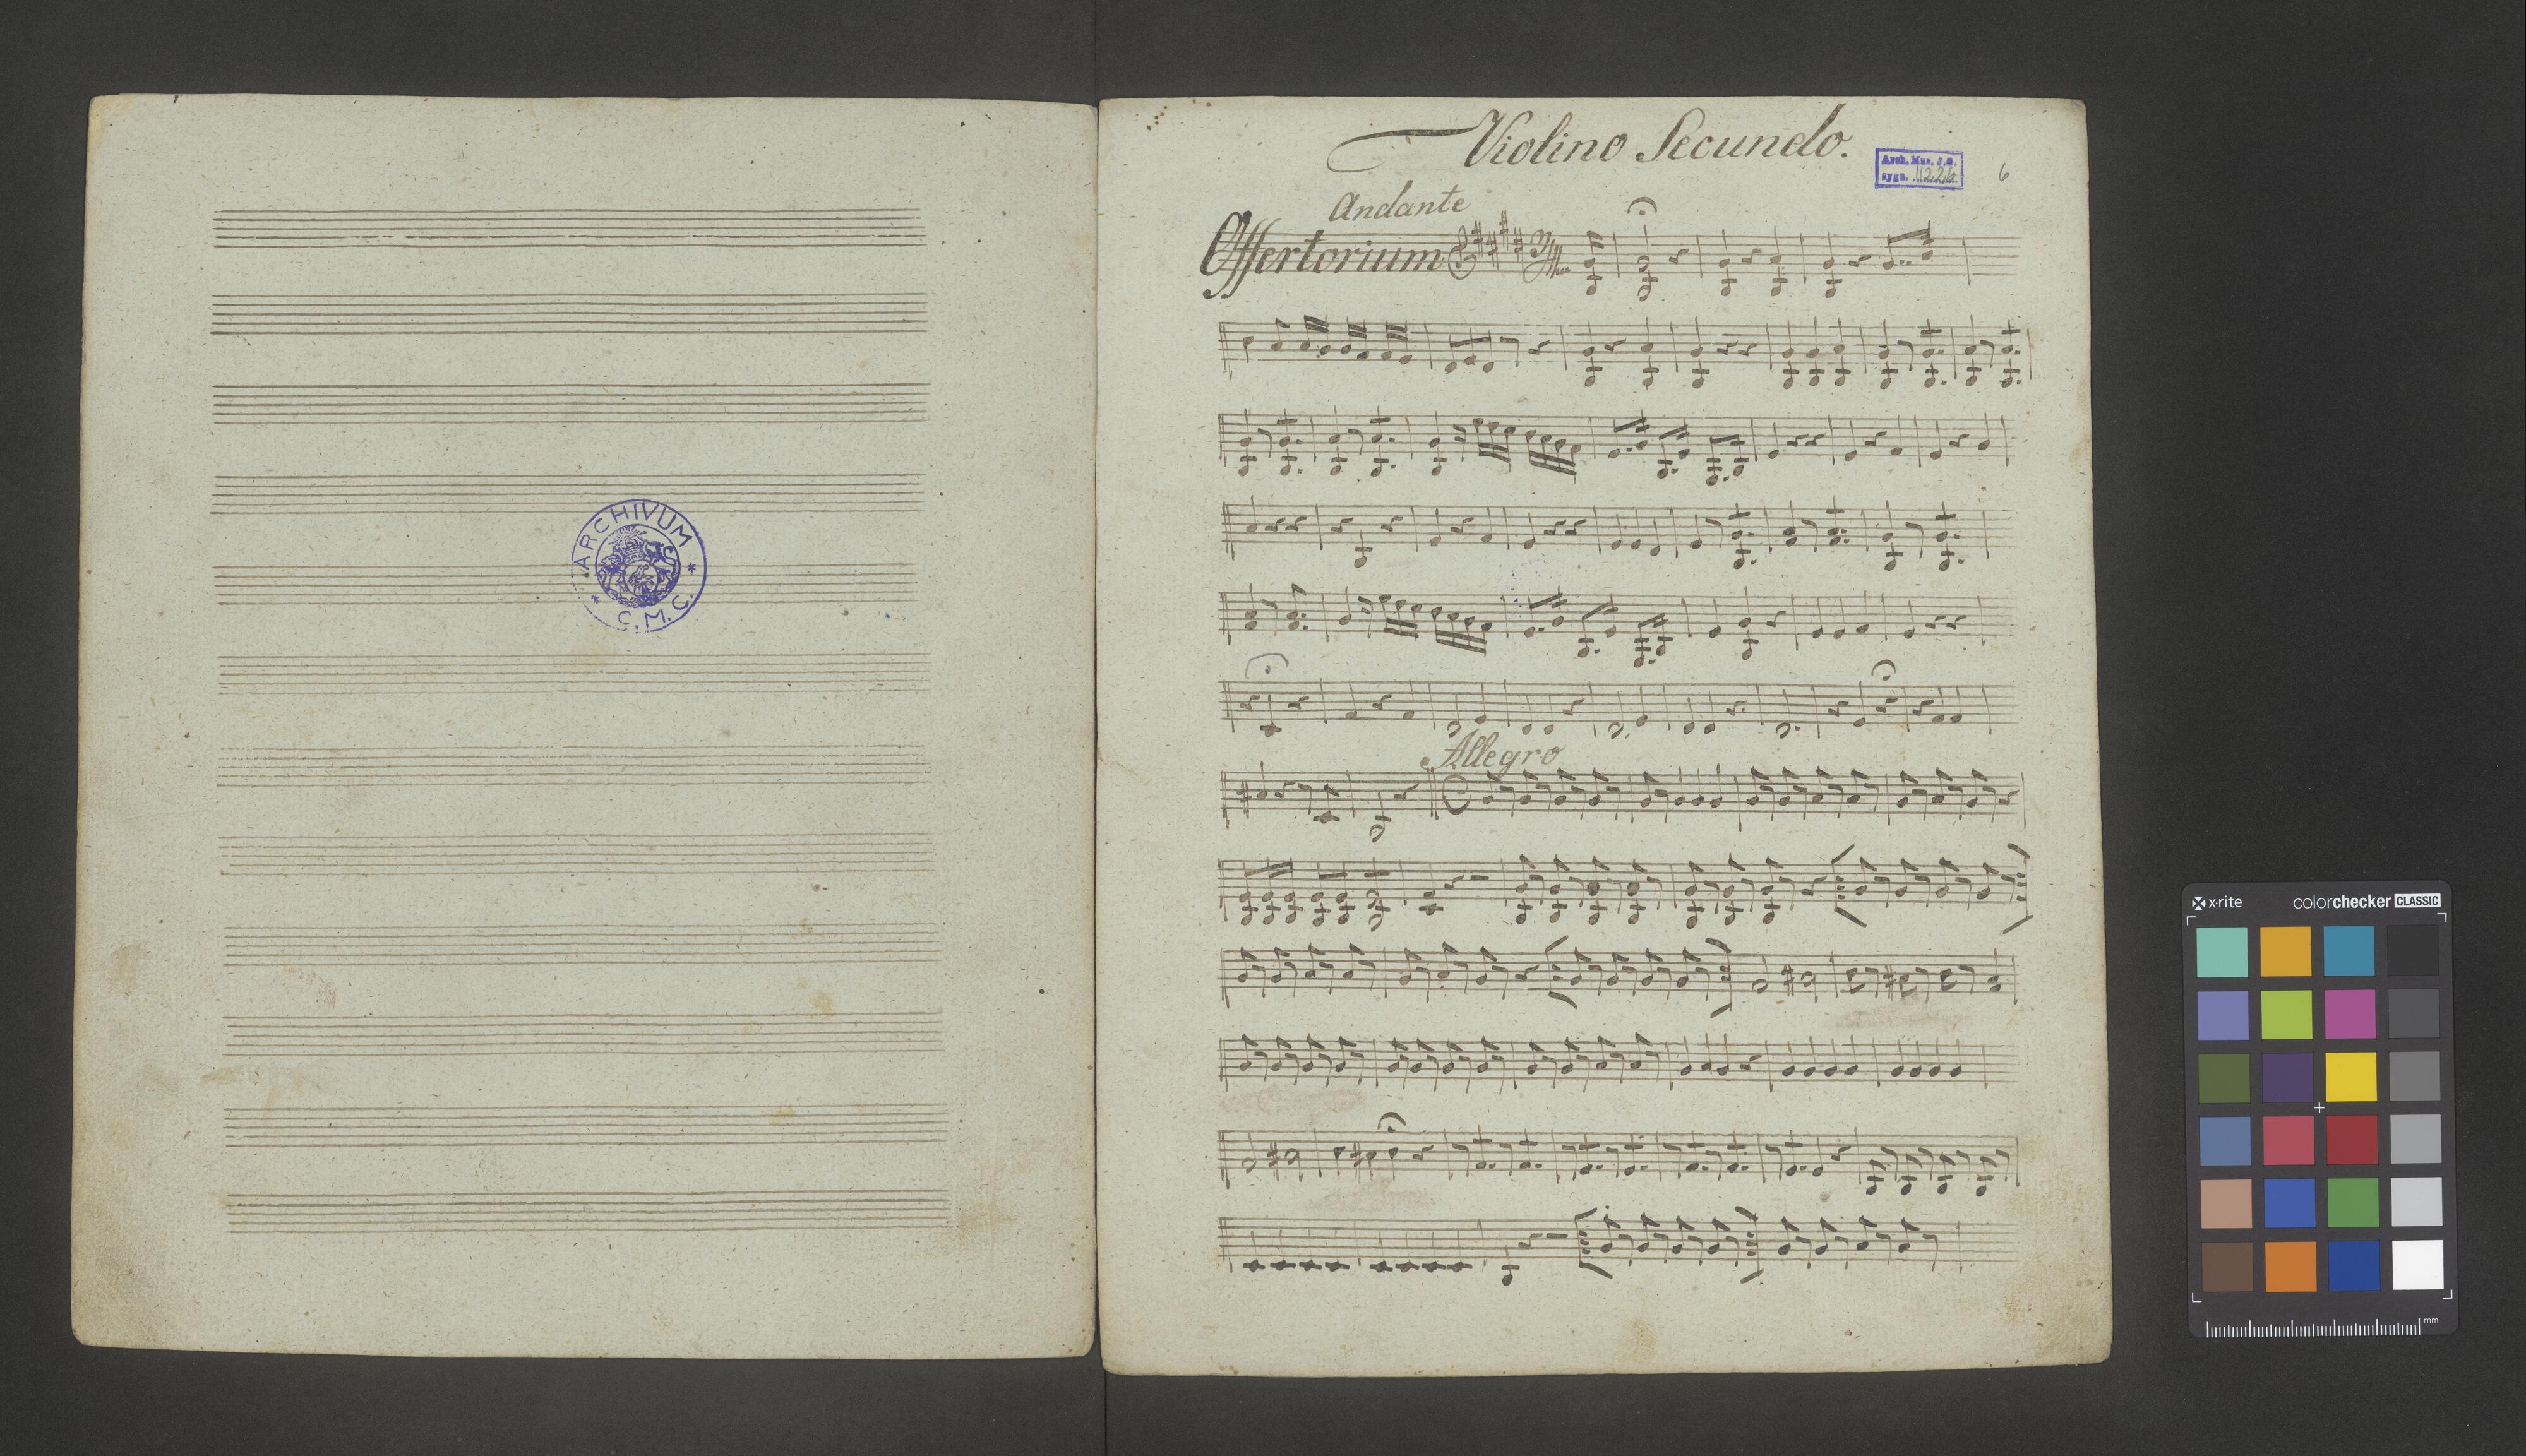 ARCHIVUM
C. M. C.
Violino Secundo.
Arch. Mus. J. G.
sygn. 1122b
6
Andante
Offertorium
Allegro
x-rite
colorchecker CLASSIC
mm